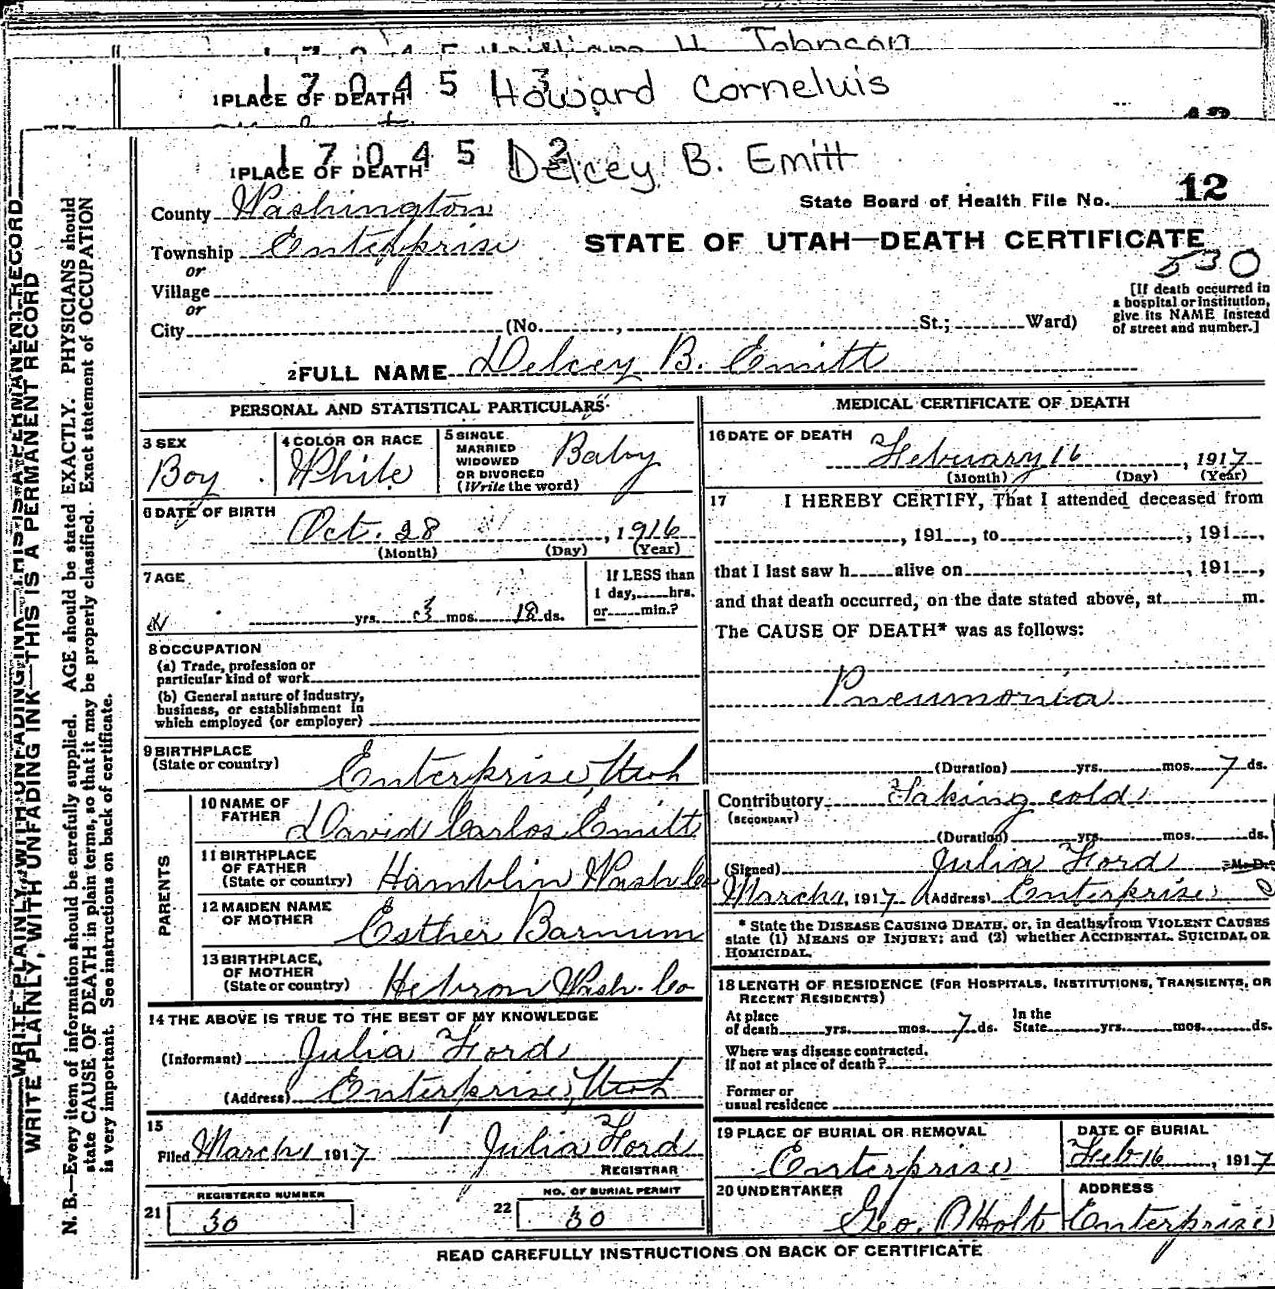 1 7 0 4 5 1 3 Howard Corneluis
1 PLACE OF DEATH
1 7 0 4 5 1 2 Delcey B. Emitt
1 PLACE OF DEATH
County Washington
State Board of Health File No. 12
Township Enterprise
STATE OF UTAH—DEATH CERTIFICATE
530
or
Village
or
City (No. , St.; Ward)
[If death occurred in
a hospital or institution,
give its NAME instead
of street and number.]
2 FULL NAME Delcey B. Emitt
PERSONAL AND STATISTICAL PARTICULARS
3 SEX
Boy
4 COLOR OR RACE
White
5 SINGLE
MARRIED
WIDOWED
OR DIVORCED
(Write the word)
Baby
6 DATE OF BIRTH
Oct. 28, 1916
(Month) (Day) (Year)
7 AGE
yrs. 3 mos. 18 ds.
If LESS than
1 day, hrs.
or min.?
8 OCCUPATION
(a) Trade, profession or
particular kind of work
(b) General nature of industry,
business, or establishment in
which employed (or employer)
9 BIRTHPLACE
(State or country) Enterprise, Utah
PARENTS
10 NAME OF
FATHER David Carlos Emitt
11 BIRTHPLACE
OF FATHER
(State or country) Hamblin Wash Co
12 MAIDEN NAME
OF MOTHER Esther Barnum
13 BIRTHPLACE,
OF MOTHER
(State or country) Hebron Wash. Co
14 THE ABOVE IS TRUE TO THE BEST OF MY KNOWLEDGE
(Informant) Julia Ford
(Address) Enterprise, Utah
15
Filed March 1 1917 Julia Ford
REGISTRAR
21 REGISTERED NUMBER
30
22 NO. OF BURIAL PERMIT
30
MEDICAL CERTIFICATE OF DEATH
16 DATE OF DEATH
February 16, 1917
(Month) (Day) (Year)
17 I HEREBY CERTIFY, That I attended deceased from
, 191 , to , 191 ,
that I last saw h alive on , 191 ,
and that death occurred, on the date stated above, at m.
The CAUSE OF DEATH* was as follows:
Pneumonia
(Duration) yrs. mos. 7 ds.
Contributory Taking cold
(SECONDARY)
(Duration) yrs. mos. ds.
(Signed) Julia Ford M. D.
March 1, 1917 (Address) Enterprise
* State the DISEASE CAUSING DEATH, or, in deaths from VIOLENT CAUSES
state (1) MEANS OF INJURY; and (2) whether ACCIDENTAL, SUICIDAL OR
HOMICIDAL.
18 LENGTH OF RESIDENCE (FOR HOSPITALS, INSTITUTIONS, TRANSIENTS, OR
RECENT RESIDENTS)
At place
of death yrs. mos. 7 ds.
In the
State yrs. mos. ds.
Where was disease contracted,
If not at place of death?
Former or
usual residence
19 PLACE OF BURIAL OR REMOVAL
Enterprise
DATE OF BURIAL
Feb 16, 1917
20 UNDERTAKER
Geo. O Holt
ADDRESS
Enterprise
READ CAREFULLY INSTRUCTIONS ON BACK OF CERTIFICATE
WRITE PLAINLY, WITH UNFADING INK—THIS IS A PERMANENT RECORD
N. B.—Every item of information should be carefully supplied. AGE should be stated EXACTLY. PHYSICIANS should
state CAUSE OF DEATH in plain terms, so that it may be properly classified. Exact statement of OCCUPATION
is very important. See instructions on back of certificate.